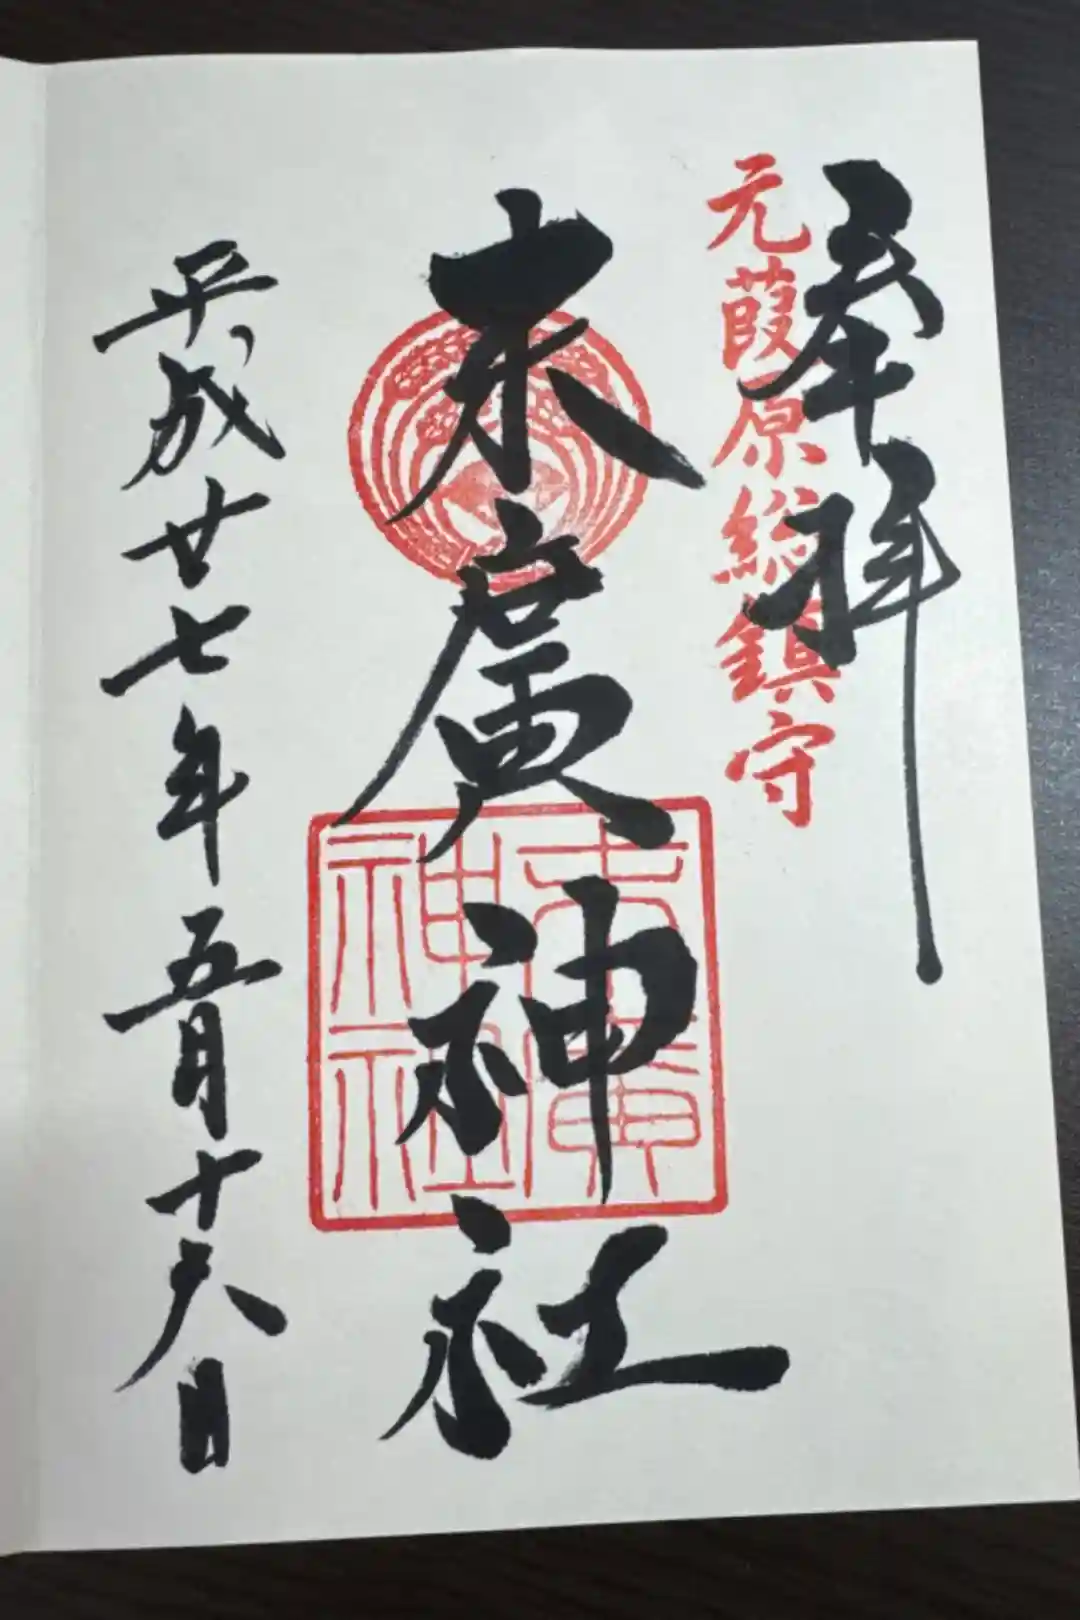 奉拝
元葭原総鎮守
末廣神社
末廣
神社
平成廿七年五月十六日